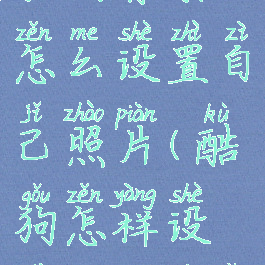 zěn me shè zhì zì
怎么设置自
jǐ zhào piàn kù
己照片(酷
gǒu zěn yàng shè
狗怎样设